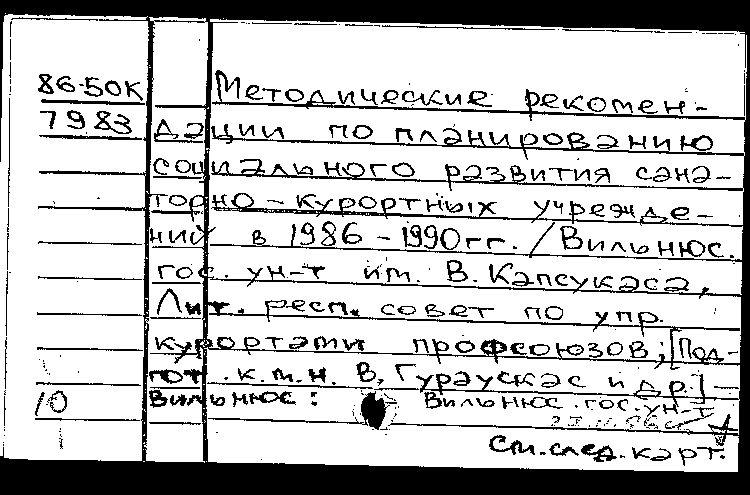 86-50К Методические рекомен-
7983 дации по планированию
социального развития сана-
торно-курортных учрежде-
ний в 1986-1990гг. / Вильнюс.
гос. ун-т им. В. Капсукаса,
Лит. респ. совет по упр.
курортами профсоюзов; [Под-
гот. к.м.н. В. Гураускас и др.] –
10 Вильнюс: Вильнюс. гос. ун-т
См. след. карт.